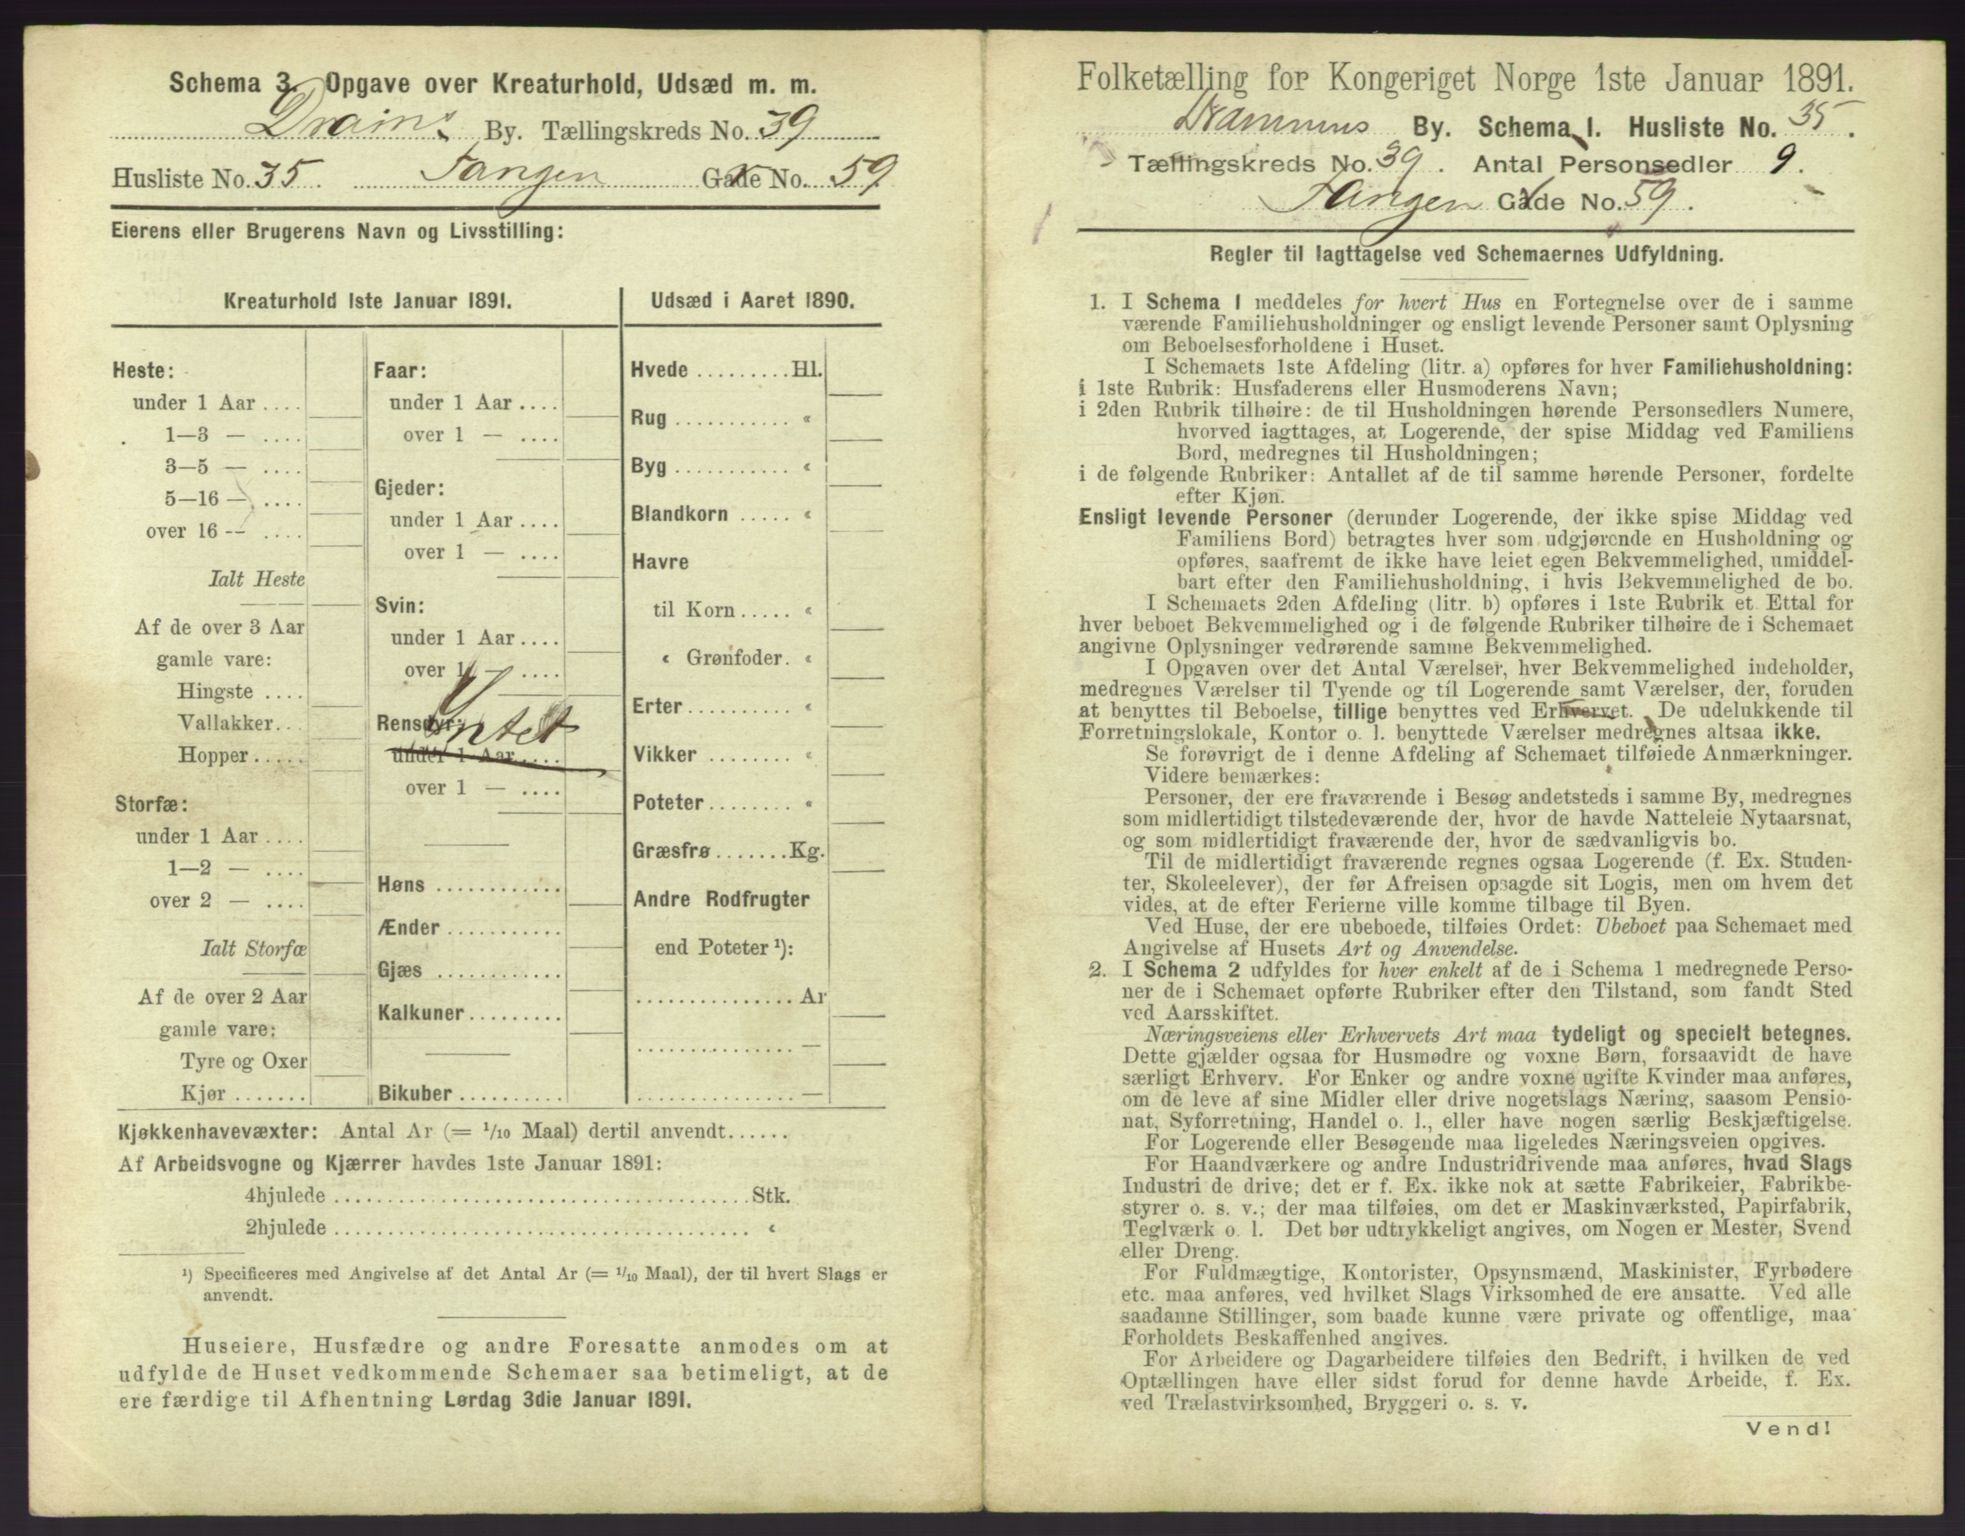 Schema 3. Opgave over Kreaturhold, Udsæd m. m.
Dramns By. Tællingskreds No. 39
Husliste No. 35. Tangen Gade No. 59
Eierens eller Brugerens Navn og Livsstilling:
Kreaturhold 1ste Januar 1891.
Heste:
under 1 Aar ....
1—3 — ....
3—5 — ....
5—16 — ....
over 16 — ....
Ialt Heste
Af de over 3 Aar
gamle vare:
Hingste ....
Vallakker...
Hopper .....
Storfæ:
under 1 Aar ....
1—2 — ....
over 2 — ....
Ialt Storfæ
Af de over 2 Aar
gamle vare:
Tyre og Oxer
Kjør .......
Faar:
under 1 Aar ....
over 1 — ....
Gjeder:
under 1 Aar ....
over 1 — ....
Svin:
under 1 Aar ....
over 1 — ....
Rensdyr:
Intet
under 1 Aar ....
over 1 — ....
Høns ............
Ænder ...........
Gjæs ............
Kalkuner.........
Bikuber ..........
Udsæd i Aaret 1890.
Hvede .........Hl.
Rug ........... «
Byg ........... «
Blandkorn ..... «
Havre
til Korn ..... «
« Grønfoder. «
Erter.......... «
Vikker ........ «
Poteter........ «
Græsfrø .......Kg.
Andre Rodfrugter
end Poteter ¹):
............... Ar
............... —
............... —
Kjøkkenhavevæxter: Antal Ar (= 1/10 Maal) dertil anvendt......
Af Arbeidsvogne og Kjærrer havdes 1ste Januar 1891:
4hjulede ........................................Stk.
2hjulede ........................................ «
¹) Specificeres med Angivelse af det Antal Ar (= 1/10 Maal), der til hvert Slags er
anvendt.
Huseiere, Husfædre og andre Foresatte anmodes om at
udfylde de Huset vedkommende Schemaer saa betimeligt, at de
ere færdige til Afhentning Lørdag 3die Januar 1891.
Folketælling for Kongeriget Norge 1ste Januar 1891.
Drammens By. Schema 1. Husliste No. 35.
Tællingskreds No. 39. Antal Personsedler 9.
Tangen Gade No. 59.
Regler til Iagttagelse ved Schemaernes Udfyldning.
1. I Schema 1 meddeles for hvert Hus en Fortegnelse over de i samme
værende Familiehusholdninger og ensligt levende Personer samt Oplysning
om Beboelsesforholdene i Huset.
I Schemaets 1ste Afdeling (litr. a) opføres for hver Familiehusholdning:
i 1ste Rubrik: Husfaderens eller Husmoderens Navn;
i 2den Rubrik tilhøire: de til Husholdningen hørende Personsedlers Numere,
hvorved iagttages, at Logerende, der spise Middag ved Familiens
Bord, medregnes til Husholdningen;
i de følgende Rubriker: Antallet af de til samme hørende Personer, fordelte
efter Kjøn.
Ensligt levende Personer (derunder Logerende, der ikke spise Middag ved
Familiens Bord) betragtes hver som udgjørende en Husholdning og
opføres, saafremt de ikke have leiet egen Bekvemmelighed, umiddel-
bart efter den Familiehusholdning, i hvis Bekvemmelighed de bo.
I Schemaets 2den Afdeling (litr. b) opføres i 1ste Rubrik et Ettal for
hver beboet Bekvemmelighed og i de følgende Rubriker tilhøire de i Schemaet
angivne Oplysninger vedrørende samme Bekvemmelighed.
I Opgaven over det Antal Værelser, hver Bekvemmelighed indeholder,
medregnes Værelser til Tyende og til Logerende samt Værelser, der, foruden
at benyttes til Beboelse, tillige benyttes ved Erhvervet. De udelukkende til
Forretningslokale, Kontor o. l. benyttede Værelser medregnes altsaa ikke.
Se forøvrigt de i denne Afdeling af Schemaet tilføiede Anmærkninger.
Videre bemærkes:
Personer, der ere fraværende i Besøg andetsteds i samme By, medregnes
som midlertidigt tilstedeværende der, hvor de havde Natteleie Nytaarsnat,
og som midlertidigt fraværende der, hvor de sædvanligvis bo.
Til de midlertidigt fraværende regnes ogsaa Logerende (f. Ex. Studen-
ter, Skoleelever), der før Afreisen opsagde sit Logis, men om hvem det
vides, at de efter Ferierne ville komme tilbage til Byen.
Ved Huse, der ere ubeboede, tilføies Ordet: Ubeboet paa Schemaet med
Angivelse af Husets Art og Anvendelse.
2. I Schema 2 udfyldes for hver enkelt af de i Schema 1 medregnede Perso-
ner de i Schemaet opførte Rubriker efter den Tilstand, som fandt Sted
ved Aarsskiftet.
Næringsveiens eller Erhvervets Art maa tydeligt og specielt betegnes.
Dette gjælder ogsaa for Husmødre og voxne Børn, forsaavidt de have
særligt Erhverv. For Enker og andre voxne ugifte Kvinder maa anføres,
om de leve af sine Midler eller drive nogetslags Næring, saasom Pensio-
nat, Syforretning, Handel o. l., eller have nogen særlig Beskjæftigelse.
For Logerende eller Besøgende maa ligeledes Næringsveien opgives.
For Haandværkere og andre Industridrivende maa anføres, hvad Slags
Industri de drive; det er f. Ex. ikke nok at sætte Fabrikeier, Fabrikbe-
styrer o. s. v.; der maa tilføies, om det er Maskinværksted, Papirfabrik,
Teglværk o. l. Det bør udtrykkeligt angives, om Nogen er Mester, Svend
eller Dreng.
For Fuldmægtige, Kontorister, Opsynsmænd, Maskinister, Fyrbødere
etc. maa anføres, ved hvilket Slags Virksomhed de ere ansatte. Ved alle
saadanne Stillinger, som baade kunne være private og offentlige, maa
Forholdets Beskaffenhed angives.
For Arbeidere og Dagarbeidere tilføies den Bedrift, i hvilken de ved
Optællingen have eller sidst forud for denne havde Arbeide, f. Ex.
ved Trælastvirksomhed, Bryggeri o. s. v.
Vend!